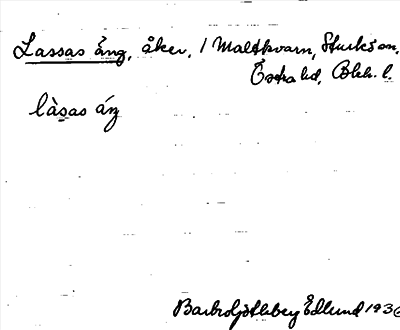 Lassas äng, åker, 1 Maltkvarn, Sturkö sn,
Östra hd, Blek. l.
làsas áŋ
Barbro Ljotleby Edlund 1936